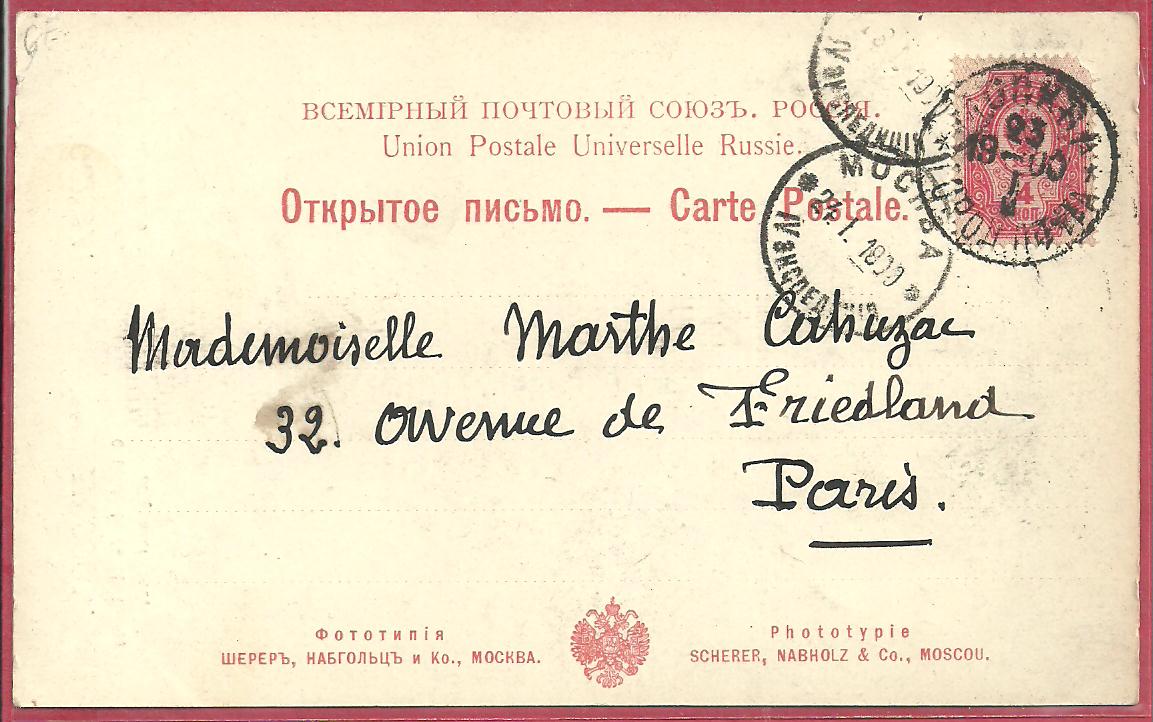 ВСЕМІРНЫЙ ПОЧТОВЫЙ СОЮЗЪ. РОССІЯ.
Union Postale Universelle Russie.
Открытое письмо. — Carte Postale.
4
КОП.
23
I
1900
МОСКВА
I. 1900
Mademoiselle Marthe Cahuzac
32. avenue de Friedland
Paris.
Фототипія
ШЕРЕРЪ, НАБГОЛЬЦЪ и Ко., МОСКВА.
Phototypie
SCHERER, NABHOLZ & Co., MOSCOU.